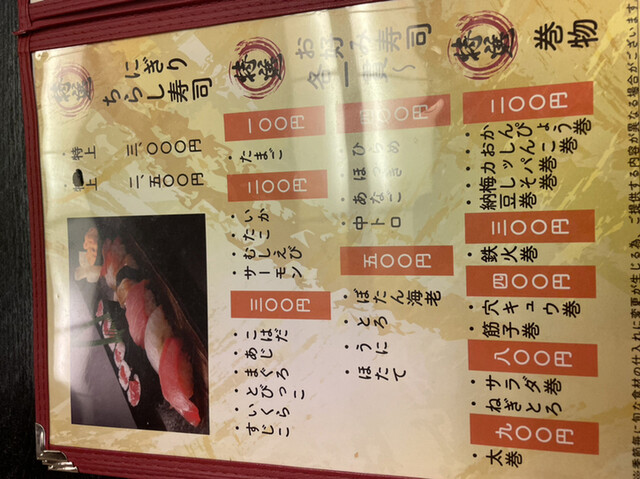 特選
巻物
二〇〇円
かんぴょう巻
おしんこ巻
かっぱ巻
梅しそ巻
納豆巻
三〇〇円
・鉄火巻
四〇〇円
・穴キュウ巻
・筋子巻
八〇〇円
・サラダ巻
・ねぎとろ
九〇〇円
・太巻
特選
お好み寿司
各一貫〜
一〇〇円
・たまご
二〇〇円
・いか
・たこ
・むしえび
・サーモン
三〇〇円
・こはだ
・あじ
・まぐろ
・とびっこ
・いくら
・すじこ
四〇〇円
・ひらめ
・ほっき
・あなご
・中トロ
五〇〇円
・ぼたん海老
・とろ
・うに
・ほたて
特選
にぎり
ちらし寿司
・特上 三、〇〇〇円
・上 二、五〇〇円
※季節毎に旬な食材の仕入れに変更が生じる為、ご提供する内容が異なる場合がございます。